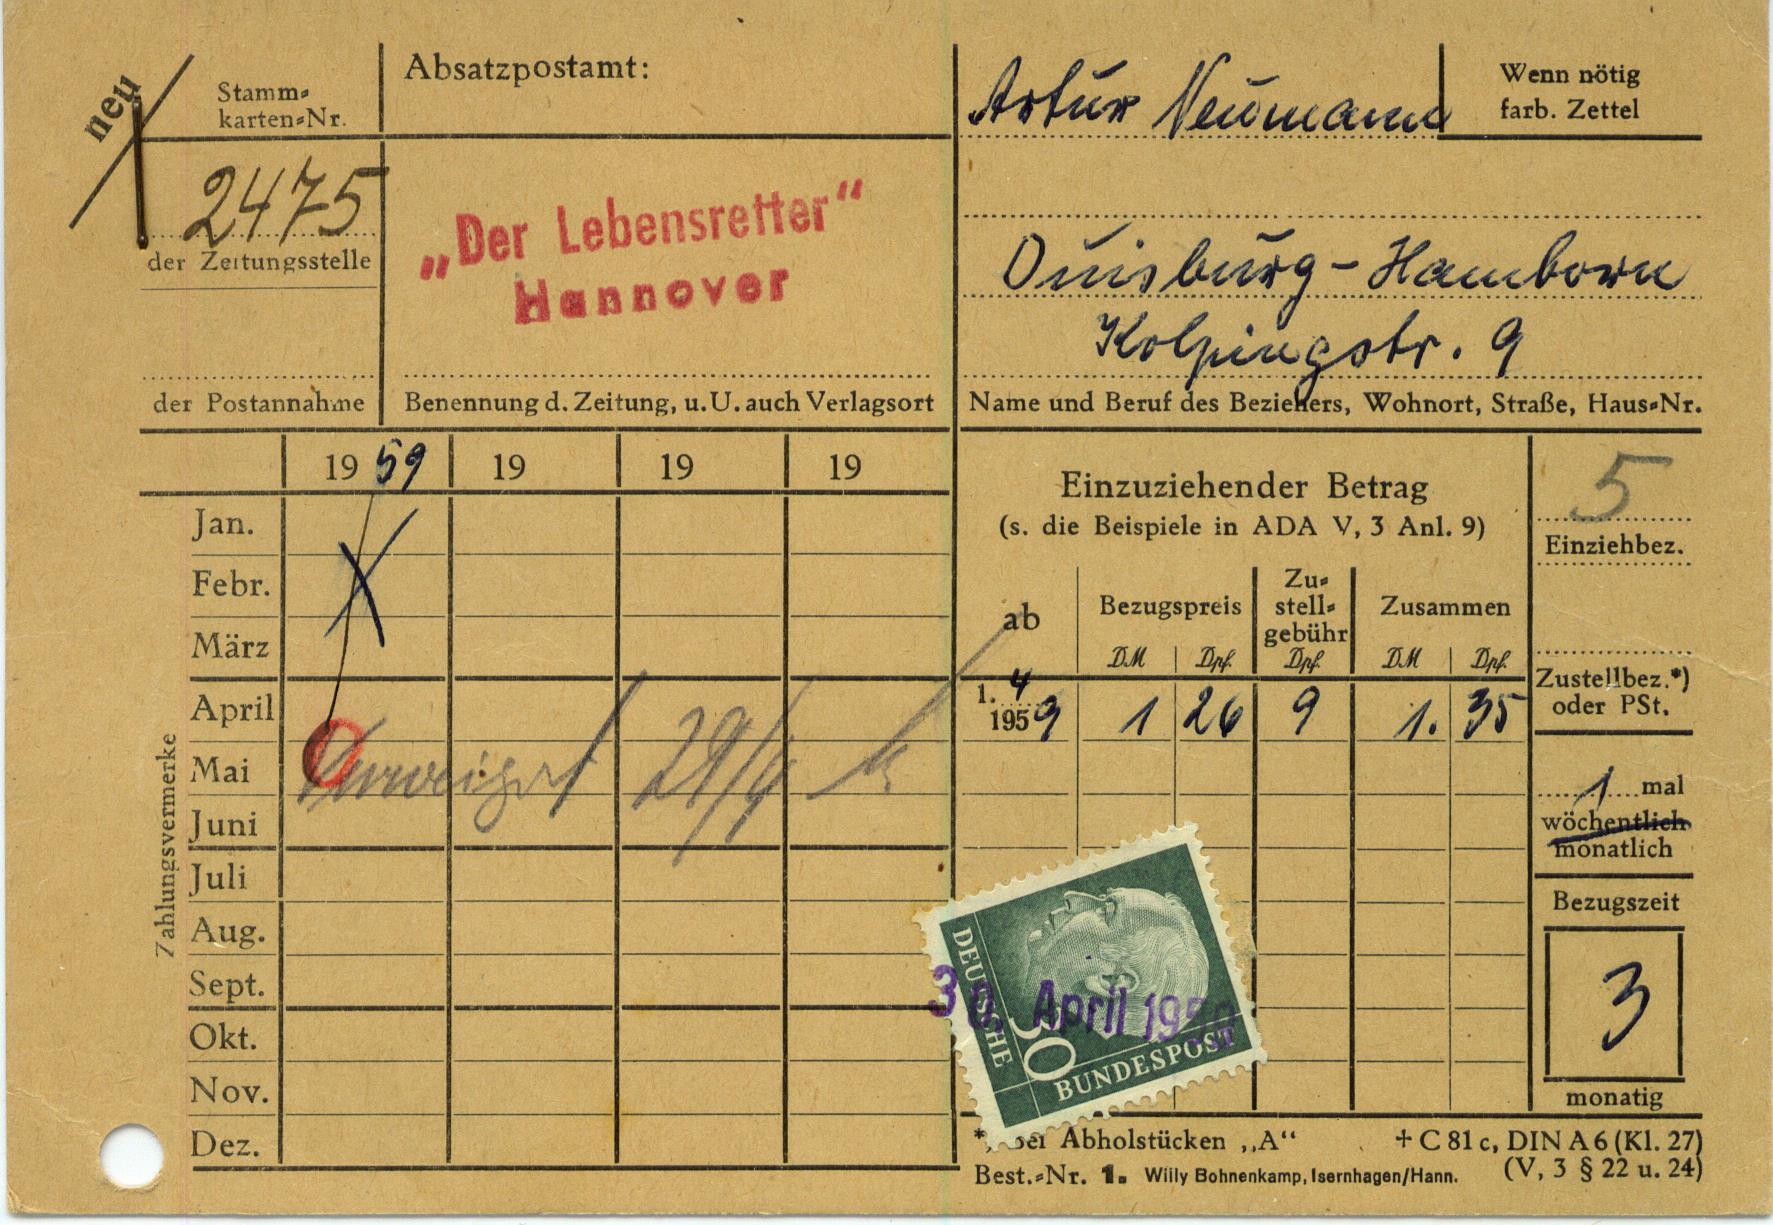 neu
Stamm=
karten=Nr.
2475
der Zeitungsstelle
der Postannahme
Absatzpostamt:
„Der Lebensretter“
Hannover
Benennung d. Zeitung, u. U. auch Verlagsort
Artur Neumann
Wenn nötig
farb. Zettel
Duisburg-Hamborn
Kolpingstr. 9
Name und Beruf des Beziehers, Wohnort, Straße, Haus=Nr.
19 59 19 19 19
Jan.
Febr.
März
April
Mai
Juni
Juli
Aug.
Sept.
Okt.
Nov.
Dez.
Zahlungsvermerke
Verweigert 29/4
Einzuziehender Betrag
(s. die Beispiele in ADA V, 3 Anl. 9)
ab
Bezugspreis
Zu=
stell=
gebühr
Zusammen
DM Dpf. Dpf. DM Dpf.
1. 4
1959 1 26 9 1. 35
5
Einziehbez.
Zustellbez.*)
oder PSt.
1 mal
wöchentlich
monatlich
Bezugszeit
3
monatig
DEUTSCHE
BUNDESPOST
30
30. April 1959
*) Bei Abholstücken „A“
+ C 81 c, DIN A 6 (Kl. 27)
(V, 3 § 22 u. 24)
Best.=Nr. 1. Willy Bohnenkamp, Isernhagen/Hann.